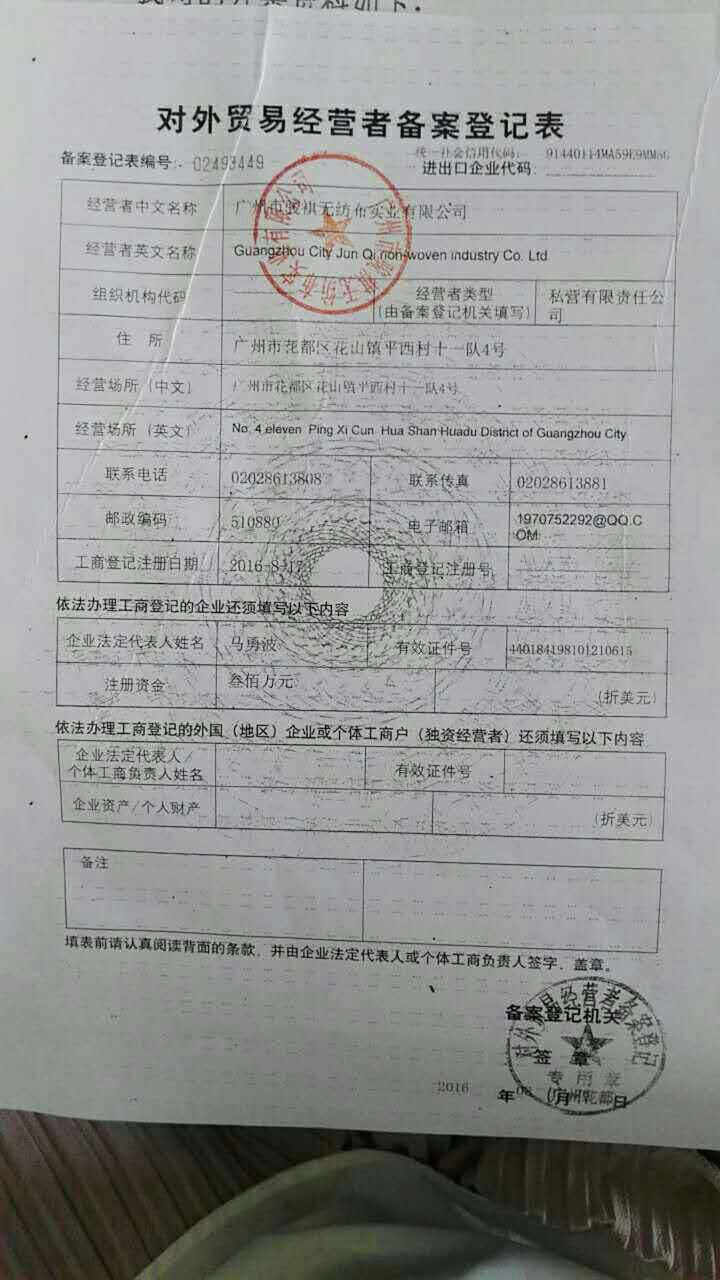 对外贸易经营者备案登记表
备案登记表编号: 02493449
统一社会信用代码: 91440114MA59E9MM5G
进出口企业代码:
经营者中文名称 广州市骏祺无纺布实业有限公司
经营者英文名称 Guangzhou City Jun Qi non-woven industry Co. Ltd
组织机构代码 经营者类型 (由备案登记机关填写) 私营有限责任公司
住 所 广州市花都区花山镇平西村十一队4号
经营场所（中文） 广州市花都区花山镇平西村十一队4号
经营场所（英文） No. 4 eleven Ping Xi Cun Hua Shan Huadu District of Guangzhou City
联系电话 02028613808 联系传真 02028613881
邮政编码 510880 电子邮箱 1970752292@QQ.COM
工商登记注册日期 2016-8-17 工商登记注册号
依法办理工商登记的企业还须填写以下内容
企业法定代表人姓名 马勇波 有效证件号 440184198101210615
注册资金 叁佰万元 (折美元)
依法办理工商登记的外国（地区）企业或个体工商户（独资经营者）还须填写以下内容
企业法定代表人/个体工商负责人姓名 有效证件号
企业资产/个人财产 (折美元)
备注
填表前请认真阅读背面的条款，并由企业法定代表人或个体工商负责人签字、盖章。
备案登记机关
签 章
对外贸易经营者备案登记
专用章
(广州花都)
2016 年 月 日